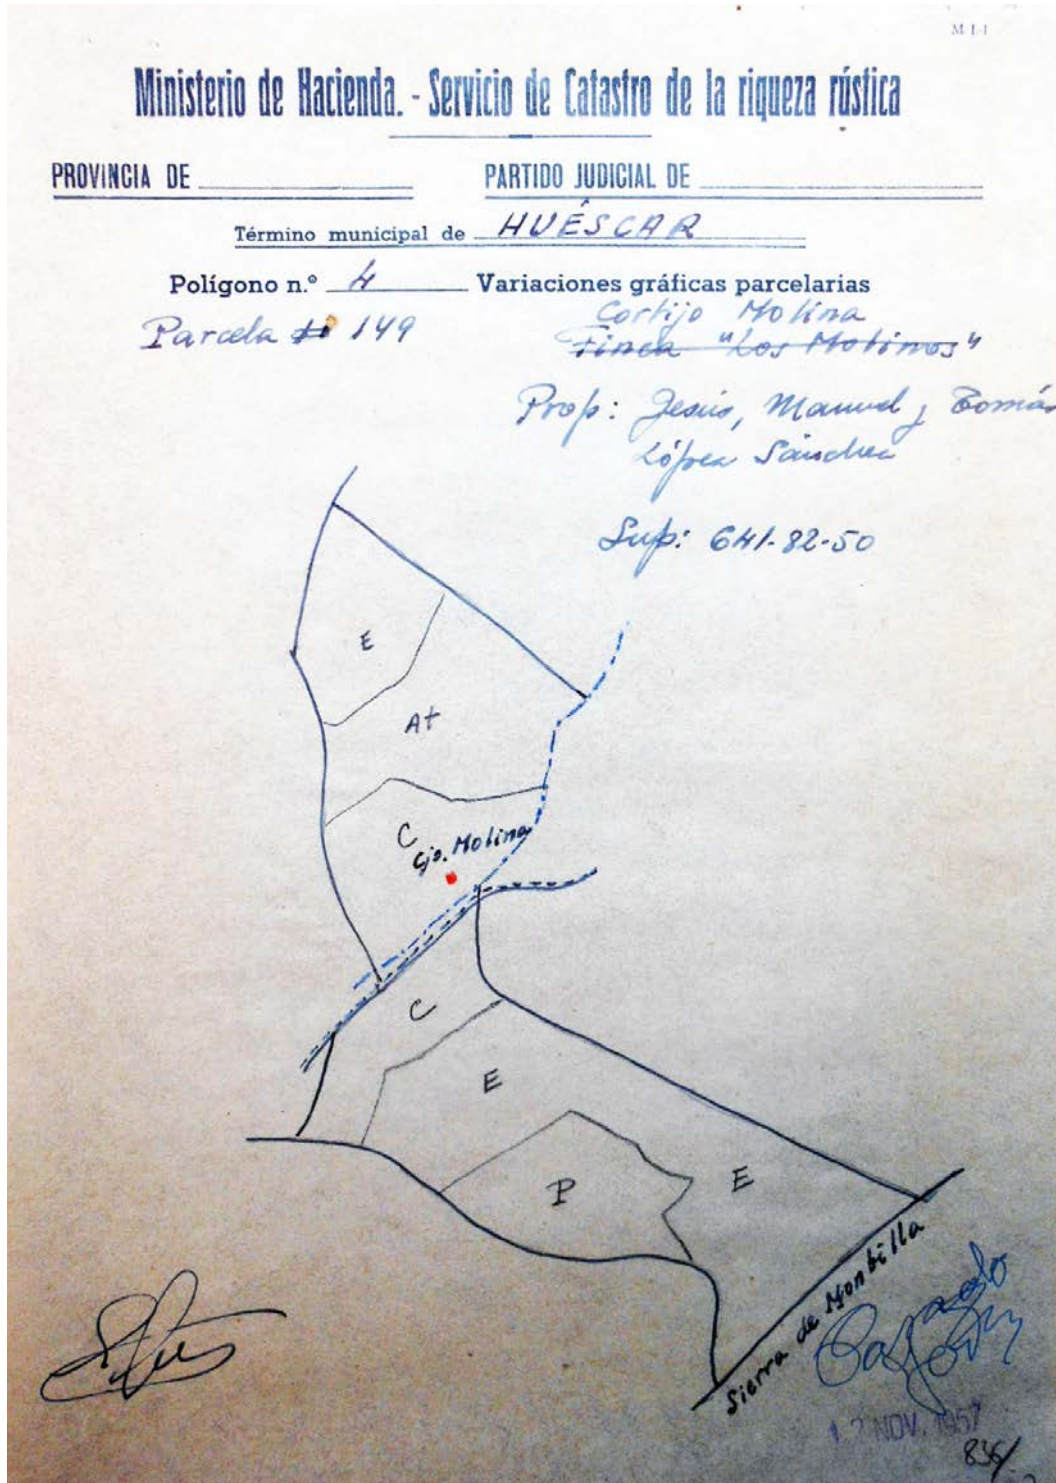 M. I-I
Ministerio de Hacienda. - Servicio de Catastro de la riqueza rústica
PROVINCIA DE PARTIDO JUDICIAL DE
Término municipal de HUÉSCAR
Polígono n.º 4 Variaciones gráficas parcelarias
Parcela 149 Cortijo Molina
Finca "Los Molinos"
Prop: Jesús, Manuel y Tomás
López Sánchez
Sup: 641-82-50
E
At
C
Cjo. Molina
C
E
P
E
Sierra de Monbilla
12 NOV. 1957
836/